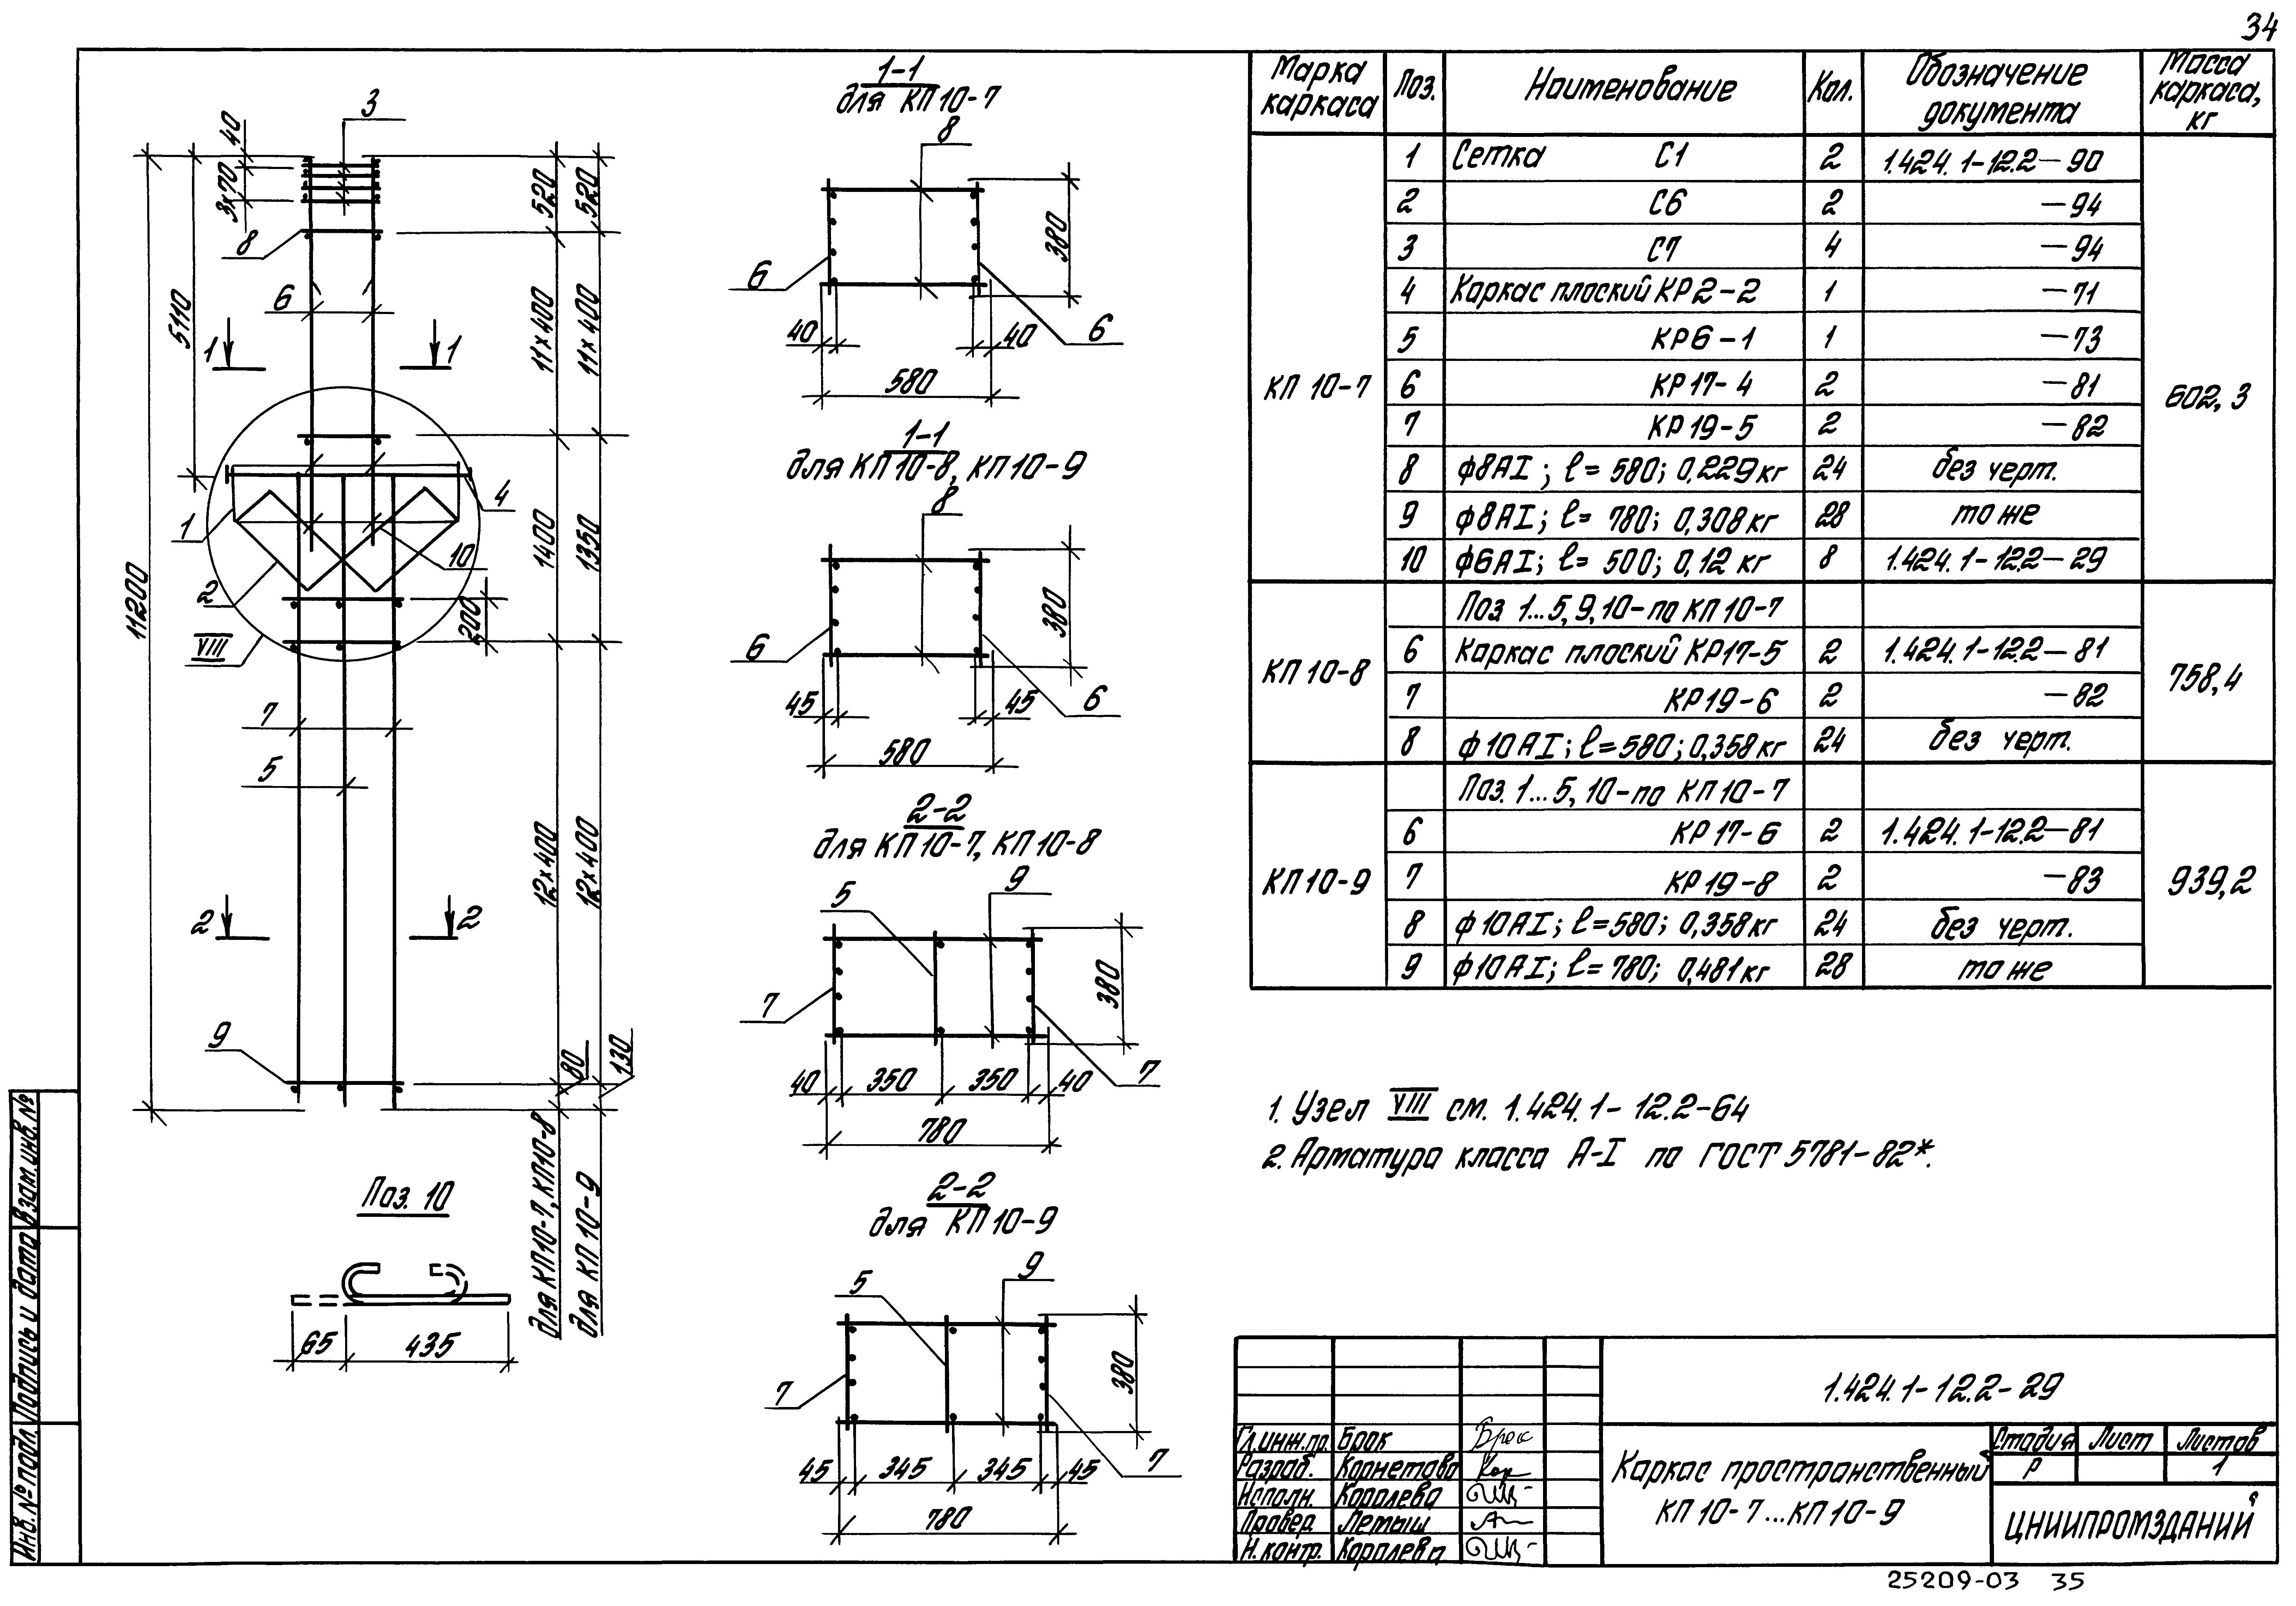 34
1-1
для КП 10-7
8
6
6
380
40
40
580
1-1
для КП 10-8, КП 10-9
8
6
6
380
45
45
580
2-2
для КП 10-7, КП 10-8
5
9
7
7
380
40
350
350
40
780
2-2
для КП 10-9
5
9
7
7
380
45
345
345
45
780
3
40
3×70
8
6
5110
1
1
4
1
10
2
200
VIII
11200
7
5
2
2
9
520
520
11×400
11×400
1400
1350
12×400
12×400
80
130
для КП 10-7, КП 10-8
для КП 10-9
Поз. 10
65
435
Марка каркаса Поз. Наименование Кол. Обозначение документа Масса каркаса, кг
КП 10-7
602,3
1 Сетка С1 2 1.424.1-12.2-90
2 С6 2 -94
3 С7 4 -94
4 Каркас плоский КР2-2 1 -71
5 КР6-1 1 -73
6 КР17-4 2 -81
7 КР19-5 2 -82
8 ф8АI; ℓ=580; 0,229кг 24 без черт.
9 ф8АI; ℓ=780; 0,308кг 28 то же
10 ф6АI; ℓ=500; 0,12 кг 8 1.424.1-12.2-29
КП 10-8
758,4
Поз 1...5,9,10-по КП 10-7
6 Каркас плоский КР17-5 2 1.424.1-12.2-81
7 КР19-6 2 -82
8 ф10АI; ℓ=580; 0,358кг 24 без черт.
КП 10-9
939,2
Поз. 1...5, 10-по КП 10-7
6 КР17-6 2 1.424.1-12.2-81
7 КР19-8 2 -83
8 ф10АI; ℓ=580; 0,358кг 24 без черт.
9 ф10АI; ℓ=780; 0,481кг 28 то же
1. Узел VIII см. 1.424.1-12.2-64
2. Арматура класса А-I по ГОСТ 5781-82*.
1.424.1-12.2-29
Гл.инж.пр. Брок
Разраб. Корнетова
Исполн. Королева
Провер. Летыш
Н.контр. Королева
Каркас пространственный
КП 10-7...КП 10-9
Стадия Лист Листов
Р 1
ЦНИИПРОМЗДАНИЙ
25209-03 35
Взам.инв.№
Подпись и дата
Инв.№ подл.